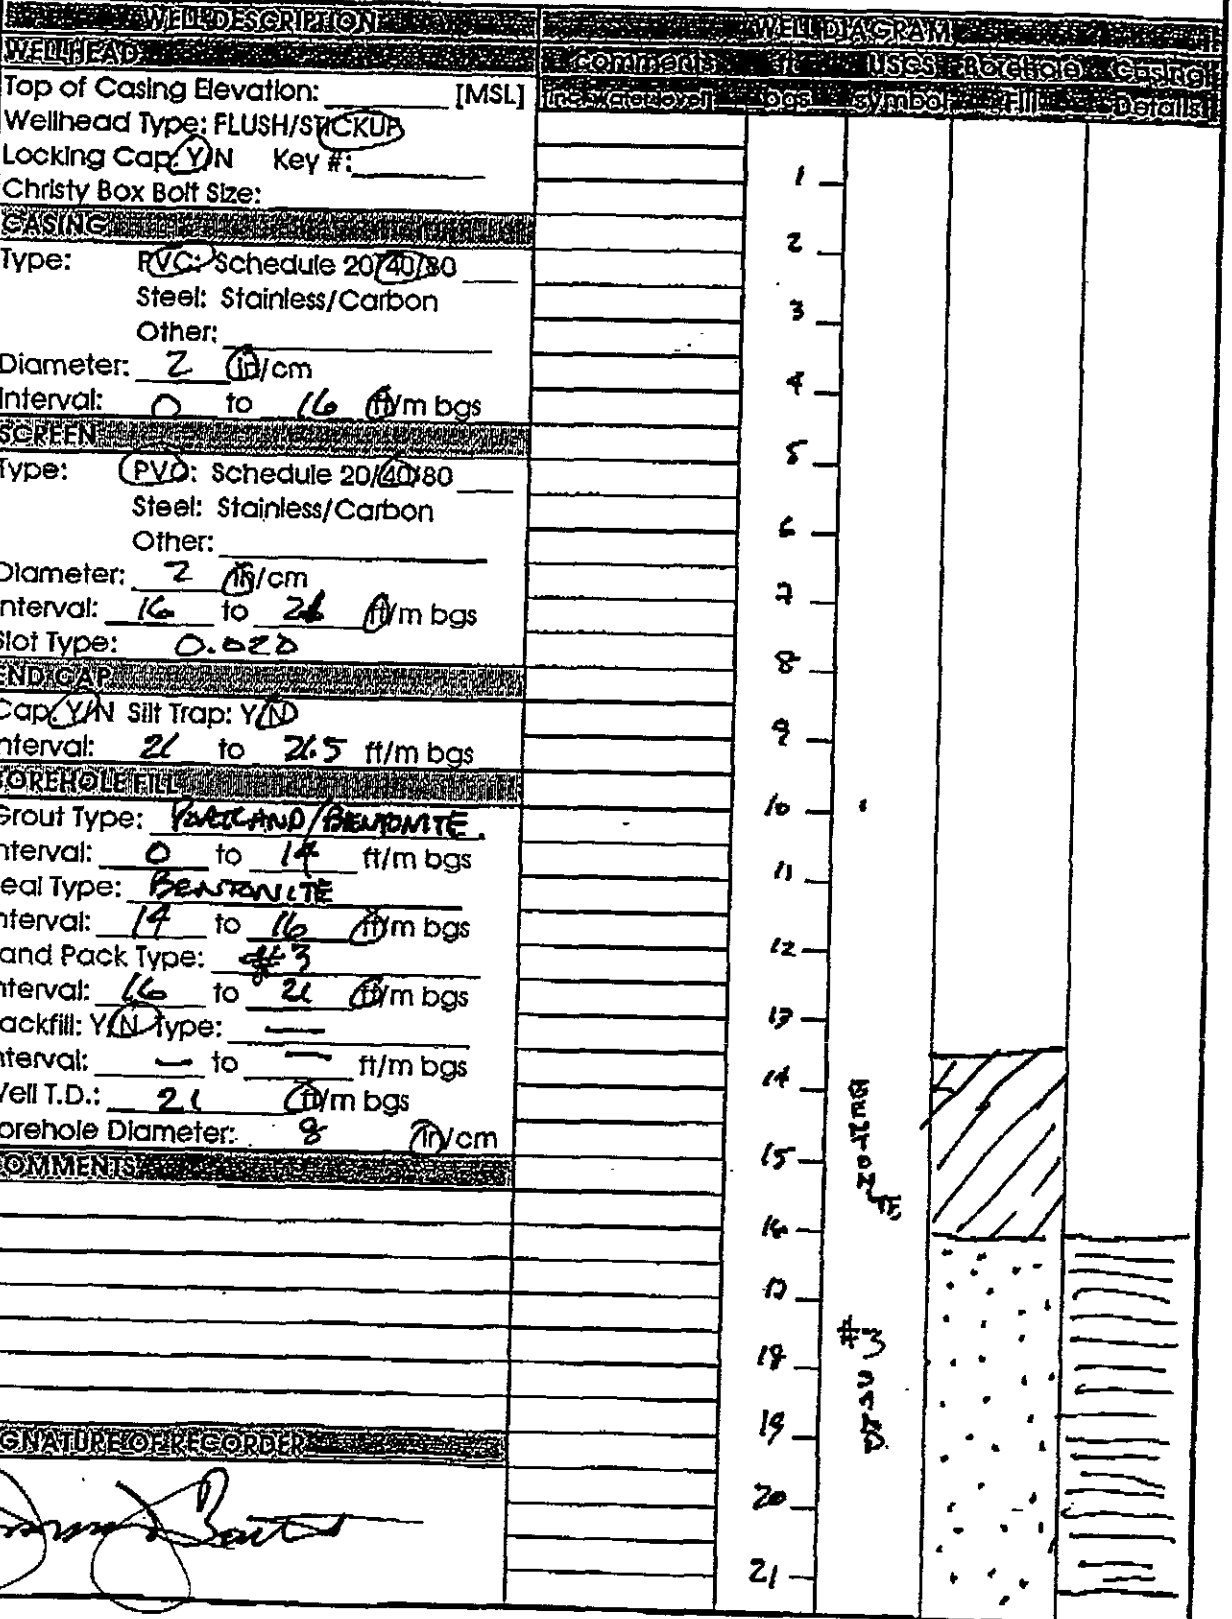 WELL DESCRIPTION
WELLHEAD
Top of Casing Elevation: [MSL]
Wellhead Type: FLUSH/STICKUP
Locking Cap: Y/N Key #:
Christy Box Bolt Size:
CASING
Type: PVC: Schedule 20/40/80
Steel: Stainless/Carbon
Other:
Diameter: 2 in/cm
Interval: 0 to 16 ft/m bgs
SCREEN
Type: PVC: Schedule 20/40/80
Steel: Stainless/Carbon
Other:
Diameter: 2 in/cm
nterval: 16 to 21 ft/m bgs
Slot Type: 0.020
END CAP
Cap: Y/N Silt Trap: Y/N
nterval: 21 to 21.5 ft/m bgs
BOREHOLE FILL
Grout Type: PORTLAND/BENTONITE
nterval: 0 to 14 ft/m bgs
eal Type: BENTONITE
nterval: 14 to 16 ft/m bgs
and Pack Type: #3
nterval: 16 to 21 ft/m bgs
ackfill: Y/N Type: —
nterval: — to — ft/m bgs
Well T.D.: 21 ft/m bgs
orehole Diameter: 8 in/cm
OMMENTS
GNATURE OF RECORDER
WELL DIAGRAM
Comments ft USGS Borehole Casing
inc. water level bgs symbol Fill Details
1
2
3
4
5
6
7
8
9
10
11
12
13
14
15
16
17
18
19
20
21
BENTONITE
#3